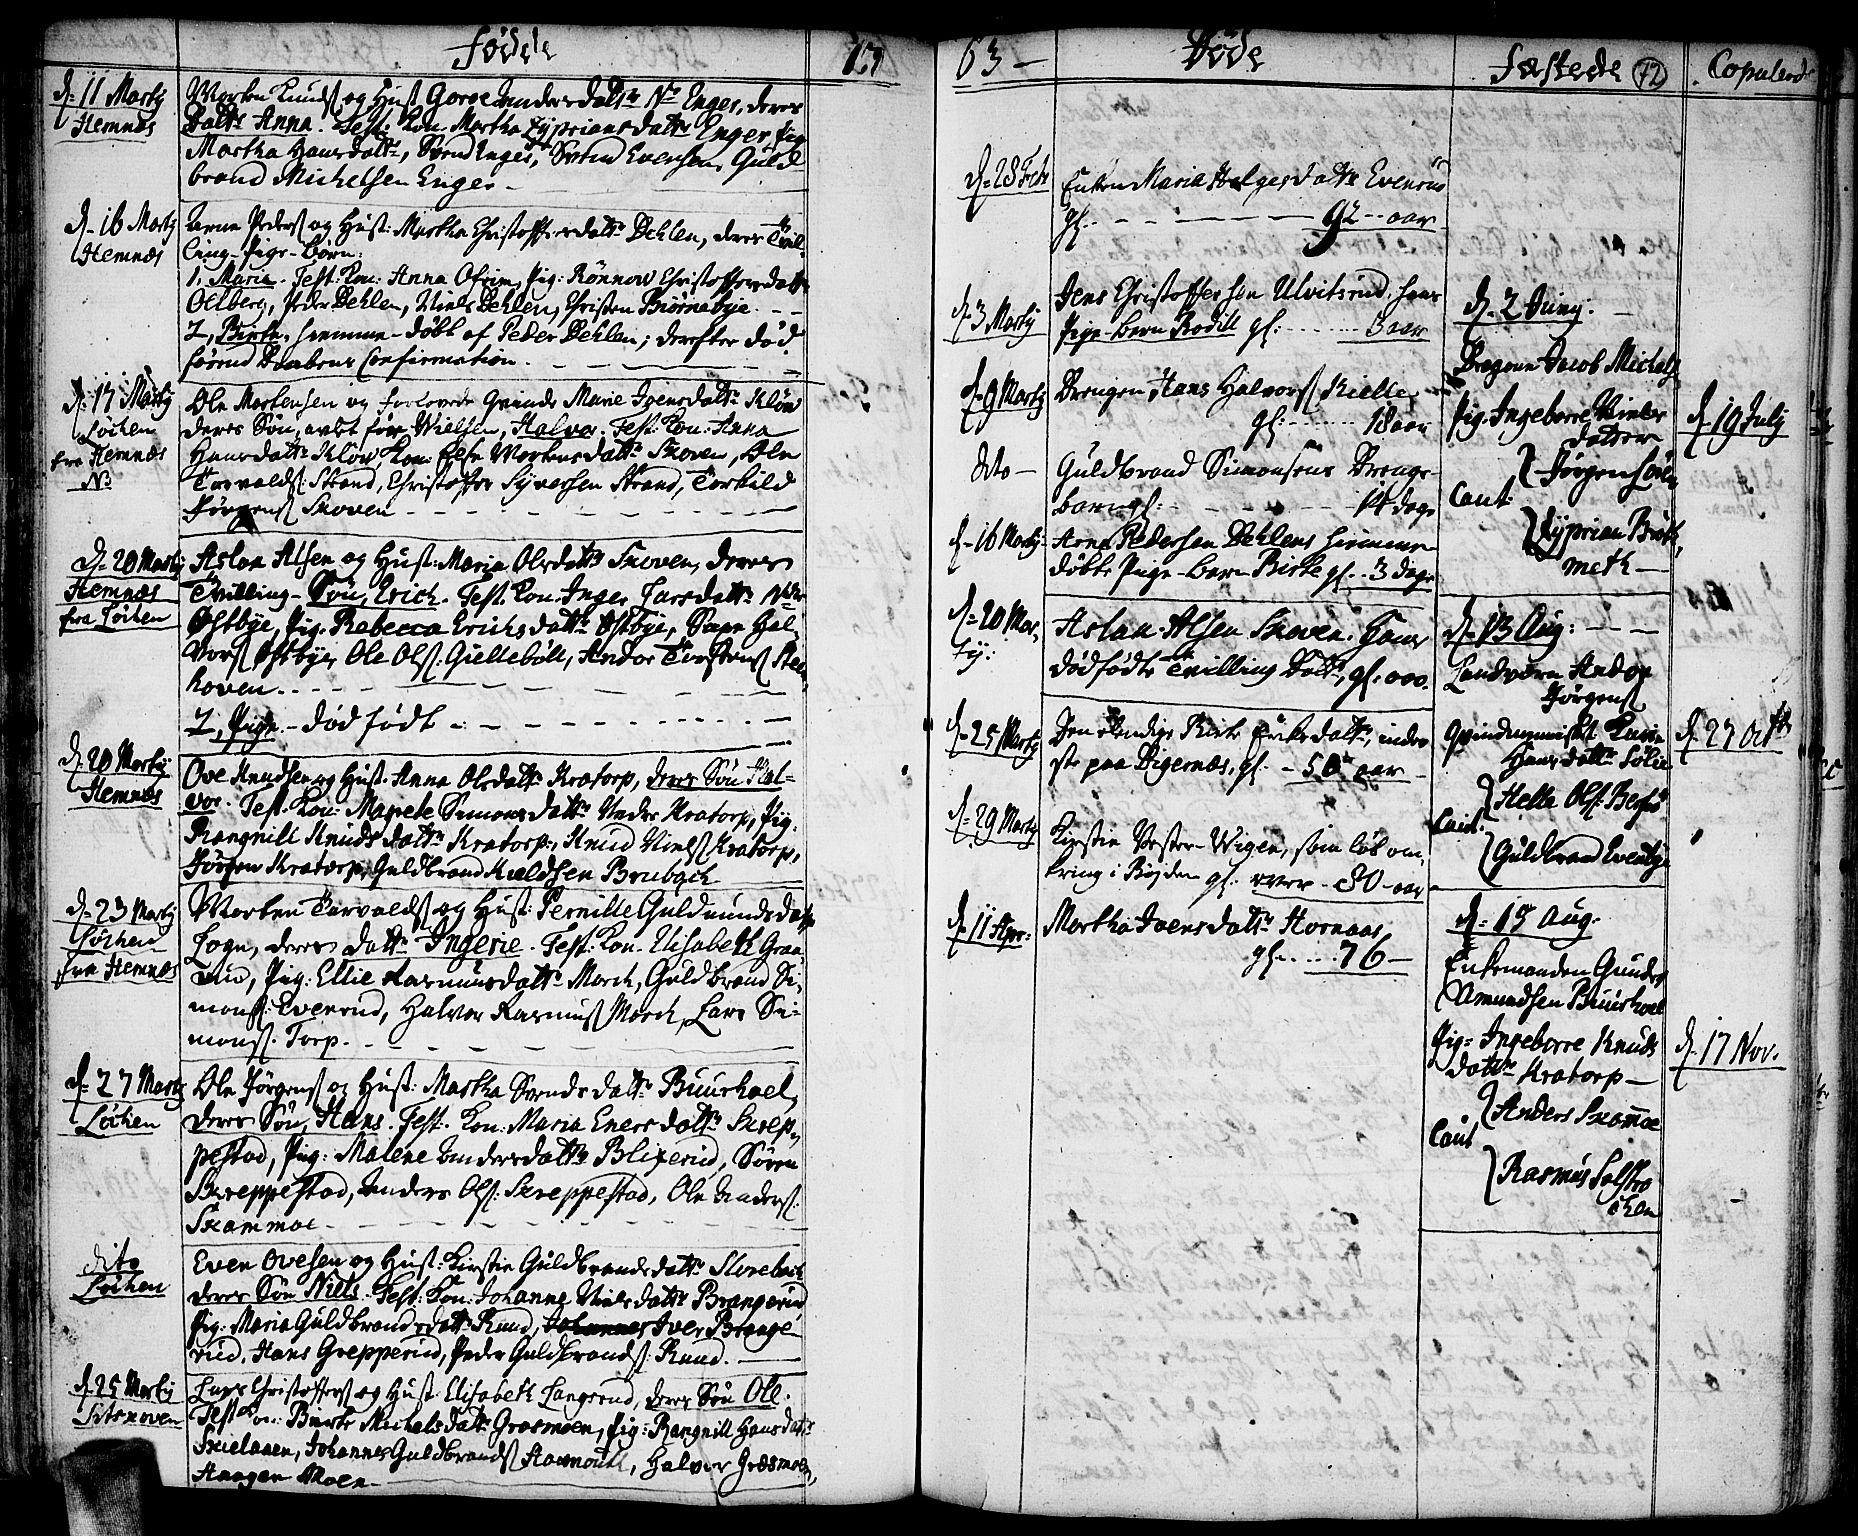 Fødde
17
d. 11 Martij
Hemnæs
Morten Knuds og Hust: Goroe Andersdattr N. Enger, deres
Dattr Anna. Test: Kon. Martha Zypriansdattr Enger, Pig.
Martha Hansdattr, Svend Enger, Svend Evensen, Guld-
brand Michelsen Enger.
d. 16 Martij
Hemnæs
Arne Peders og Hust: Martha Christoffersdattr Dehlen, deres Tvil-
ling-Pige-Børn:
1, Maria. Test. Kon. Anna Ofrim, Pig: Rønnow Christoffersdattr
Olberg, Peder Dehlen, Niels Dehlen, Christen Biørnebye.
2, Birte, hiemme-døbt af Peder Dehlen; derefter død
førend Daabens Confirmation.
d. 17 Martij
Löchen
fra Hemnæs
No
Ole Mortensen og forlovede Qvinde Marie Joensdattr Kløv
deres Søn, avlet før Vielsen, Halvor. Test. Kon. Anna
Hansdattr Kløv, Kon: Else Mortensdattr Skoven, Ole
Torvalds: Strand, Christoffer Syversen Strand, Torkild
Jørgens Skoven
d. 20 Martij
Hemnæs
fra Löchen
Aslan Alsen og Hust: Maria Olsdattr Skoven, deres
Tvilling-Søn, Erich. Test. Kon. Inger Larsdattr N.
Østbye, Pig. Rebecca Erichsdattr Østbye, Svend Hal-
vors Østbye, Ole Ols: Gullebøll, Andor Torstens Steen-
hoven.
2, Pige - død født
d. 20 Martij
Hemnæs
Ove Knudsen og Hust. Anna Olsdattr Kratorp, deres Søn Hal-
vor. Test. Kon: Marete Simensdattr Nedre Kratorp, Pig:
Rangnill Knudsdattr Kratorp, Knud Niels Kratorp,
Jørgen Kratorp, Guldbrand Kieldsen Brubach
d. 23 Martij
Löchen
fra Hemnæs
Morten Torvalds og Hust: Pernille Guldmundsdattr
Logn, deres Dattr Ingerie. Test: Kon. Elisabeth Graa-
rud, Pig: Ellie Rasmusdattr Morch, Guldbrand Si-
mons: Evenrud, Halvor Rasmus Morch, Lars Si-
mons. Torp.
d. 27 Martij
Löchen
Ole Jørgens og Hust: Martha Svendsdattr Buurhoel,
deres Søn, Hans. Test. Kon: Maria Enersdattr Skrep-
pestad, Pig: Malene Andersdattr Blixerud, Søren
Skreppestad, Anders Ols: Skreppestad, Ole Anders:
Skammoe
dito
Löchen
Even Ovesen og Hust: Kirstie Guldbrandsdattr Slorebech
deres Søn Niels. Test. Kon: Johanne Nielsdattr Brangerud
Pig: Maria Guldbrandsdattr Ruud, Iver Brange-
rud, Hans Grepperud, Peder Guldbrands: Ruud.
d. 25 Martij
Sitskoven
Lars Christoffers og Hust: Elisabeth Langerud, deres Søn Ole.
Test. Kon: Birte Michelsdattr Græsmoen, Pig: Rangnill Hansdattr
Skielaaen, Johannes Guldbrands, Halvor Græsmoen,
Haagen Moen
63
Døde
d. 28 Febr
Enken Maria Helgesdattr Evenrud
gl. 92 aar
d. 3 Martij
Jens Christoffersen Ulvitsrud hans
Pige-Barn Bodill gl: 3 aar
d. 9 Martij
Drengen Hans Halvors Kielle
gl: 18 aar
dito
Guldbrand Simonsens Drenge
barn gl: 14 dage
d. 16 Martij
Arne Pedersen Dehlens hiemme-
døbte Pige-Barn Birte gl. 3 dage
d. 20 Mar-
tij:
Aslan Alsen Skoven. Hans
dødfødte Tvilling Dattr, gl. 000.
d. 25 Martij
Den elendige Birte Eriksdattr, inder-
ste paa Digernæs, gl. 50 aar
d. 29 Martij
Kirstie Vester-Wigen, som løb om-
kring i Bøjden gl. over 80 aar
d. 11 Apr:
Martha Joensdattr Hornaas
gl. 76
Fæstede
72
d. 2 Junij:
Dragoun Jacob Michels
Pig. Ingeborre Winter
datter
Caut:
Jørgen Sölie
Zyprian Brek
meth
d. 13 Aug:
Landværn Andor
Jørgens
Qvindemennisket Karie
Hansdattr Sölie
Caut:
Helle Ols: Berhus
Guldbrand Evenbye
d. 15 Aug.
Enkemanden Gunder
Amundsen Buurhoel
Pig: Ingeborre Knuds
datter Kratorp
Caut
Anders Skammoe
Rasmus Solstro
ichen
Copulerde
d. 19 Julij
d. 27 Octbr
d. 17 Nov.